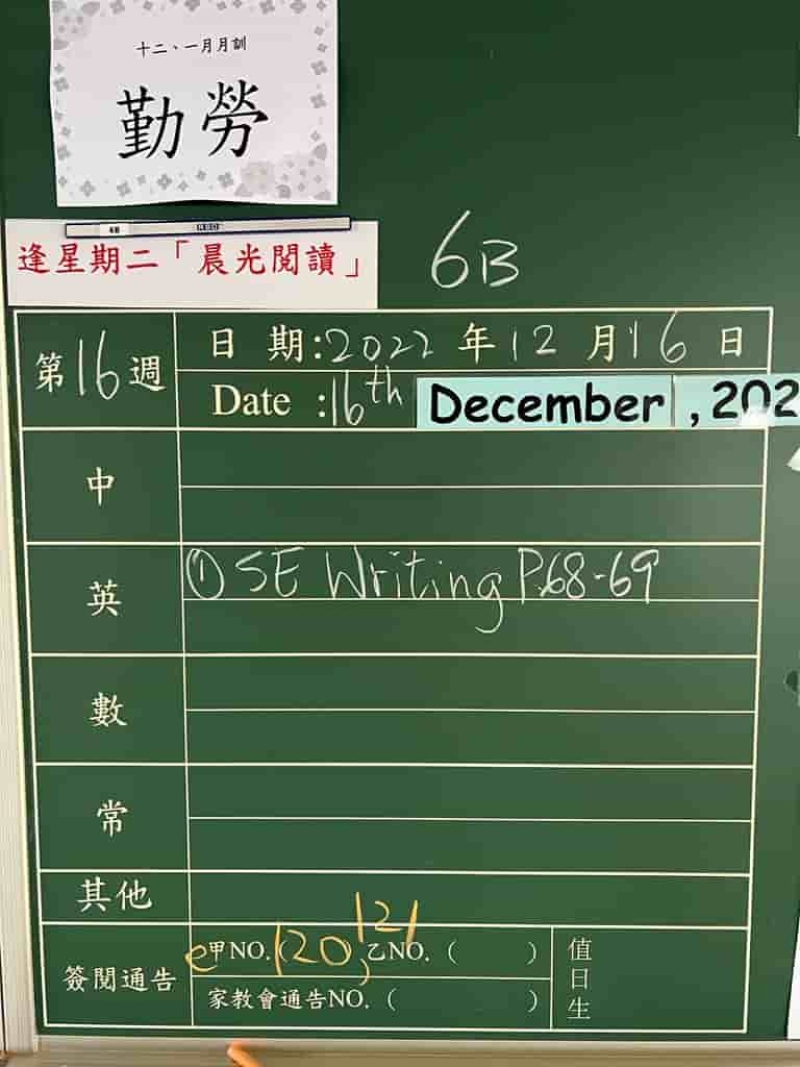 十二、一月月訓
勤勞
逢星期二「晨光閱讀」
6B
第16週
日 期:2022 年 12 月 16 日
Date :16th December , 202
中
英
① SE Writing P.68-69
數
常
其他
121
簽閱通告
e甲NO.(120, 乙NO. ( )
家教會通告NO. ( )
值日生